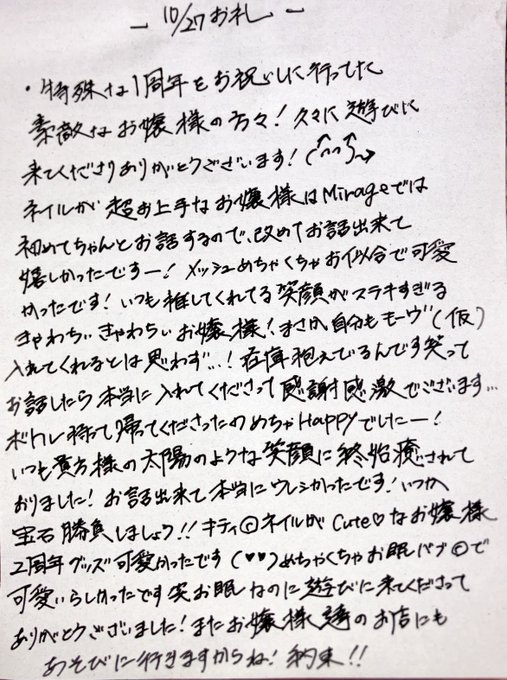 - 10/27 お礼 -
・特殊な1周年をお祝いしに行ってた
素敵なお嬢様の方々！久々に遊びに
来てくださりありがとうございます！
ネイルが超お上手なお嬢様はMirageでは
初めてちゃんとお話するので、改めてお話出来て
嬉しかったですー！メッシュめちゃくちゃお似合で可愛
かったです！いつも推してくれてる笑顔がステキすぎる
きゃわちぃきゃわちぃお嬢様！まさか自分もモーヴ(仮)
入れてくれるとは思わず…！在庫抱えているんです笑って
お話したら本当に入れてくださって感謝感激でございます…
ボトル持って帰ってくださったのめちゃHappyでしたー！
いつも貴方様の太陽のような笑顔に終始癒されて
おりました！お話出来て本当にウレシかったです！いつか
宝石勝負しましょう！！キティ©ネイルがCute♡なお嬢様
2周年グッズ可愛かったです(♥♥)めちゃくちゃお眠バブ©で
可愛いらしかったです笑お眠なのに遊びに来てくださって
ありがとうございました！またお嬢様達のお店にも
あそびに行きますからね！約束！！